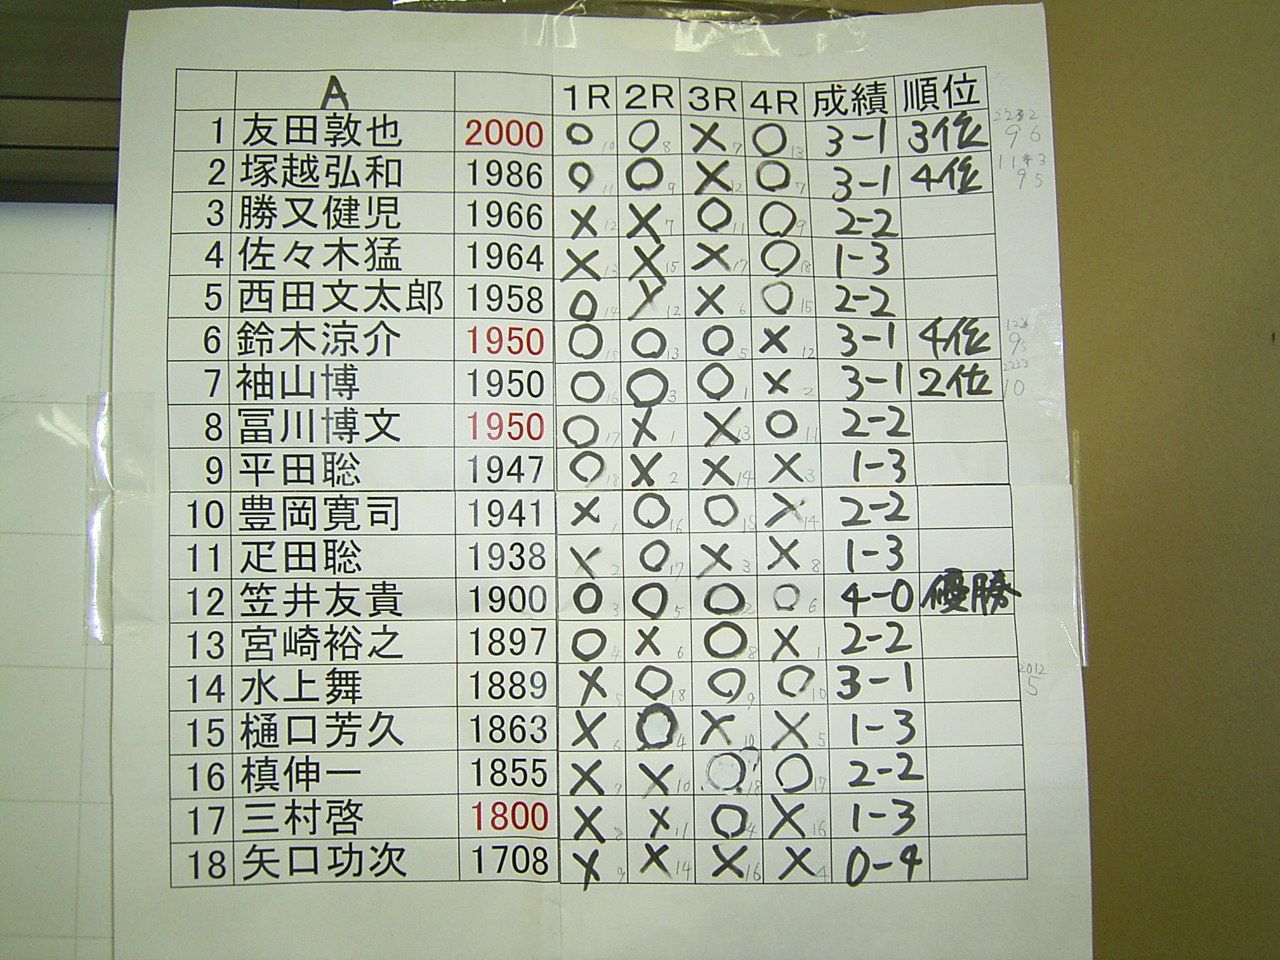 A 1R 2R 3R 4R 成績 順位
1 友田敦也 2000 ○ 10 ○ 8 × 7 ○ 13 3-1 3位
2 塚越弘和 1986 ○ 11 ○ 9 × 12 ○ 7 3-1 4位
3 勝又健児 1966 × 12 × 7 ○ 11 ○ 9 2-2
4 佐々木猛 1964 × 13 × 15 × 17 ○ 18 1-3
5 西田文太郎 1958 ○ 14 × 12 × 6 ○ 15 2-2
6 鈴木涼介 1950 ○ 15 ○ 13 ○ 5 × 12 3-1 4位
7 袖山博 1950 ○ 16 ○ 3 ○ 1 × 2 3-1 2位
8 冨川博文 1950 ○ 17 × 1 × 13 ○ 11 2-2
9 平田聡 1947 ○ 18 × 2 × 14 × 3 1-3
10 豊岡寛司 1941 × 1 ○ 16 ○ 15 × 14 2-2
11 疋田聡 1938 × 2 ○ 17 × 3 × 8 1-3
12 笠井友貴 1900 ○ 3 ○ 5 ○ 2 ○ 6 4-0 優勝
13 宮崎裕之 1897 ○ 4 × 6 ○ 8 × 1 2-2
14 水上舞 1889 × 5 ○ 18 ○ 9 ○ 10 3-1
15 樋口芳久 1863 × 6 ○ 4 × 10 × 5 1-3
16 槙伸一 1855 × 7 × 10 ○ 18 ○ 17 2-2
17 三村啓 1800 × 8 × 11 ○ 4 × 16 1-3
18 矢口功次 1708 × 9 × 14 × 16 × 4 0-4